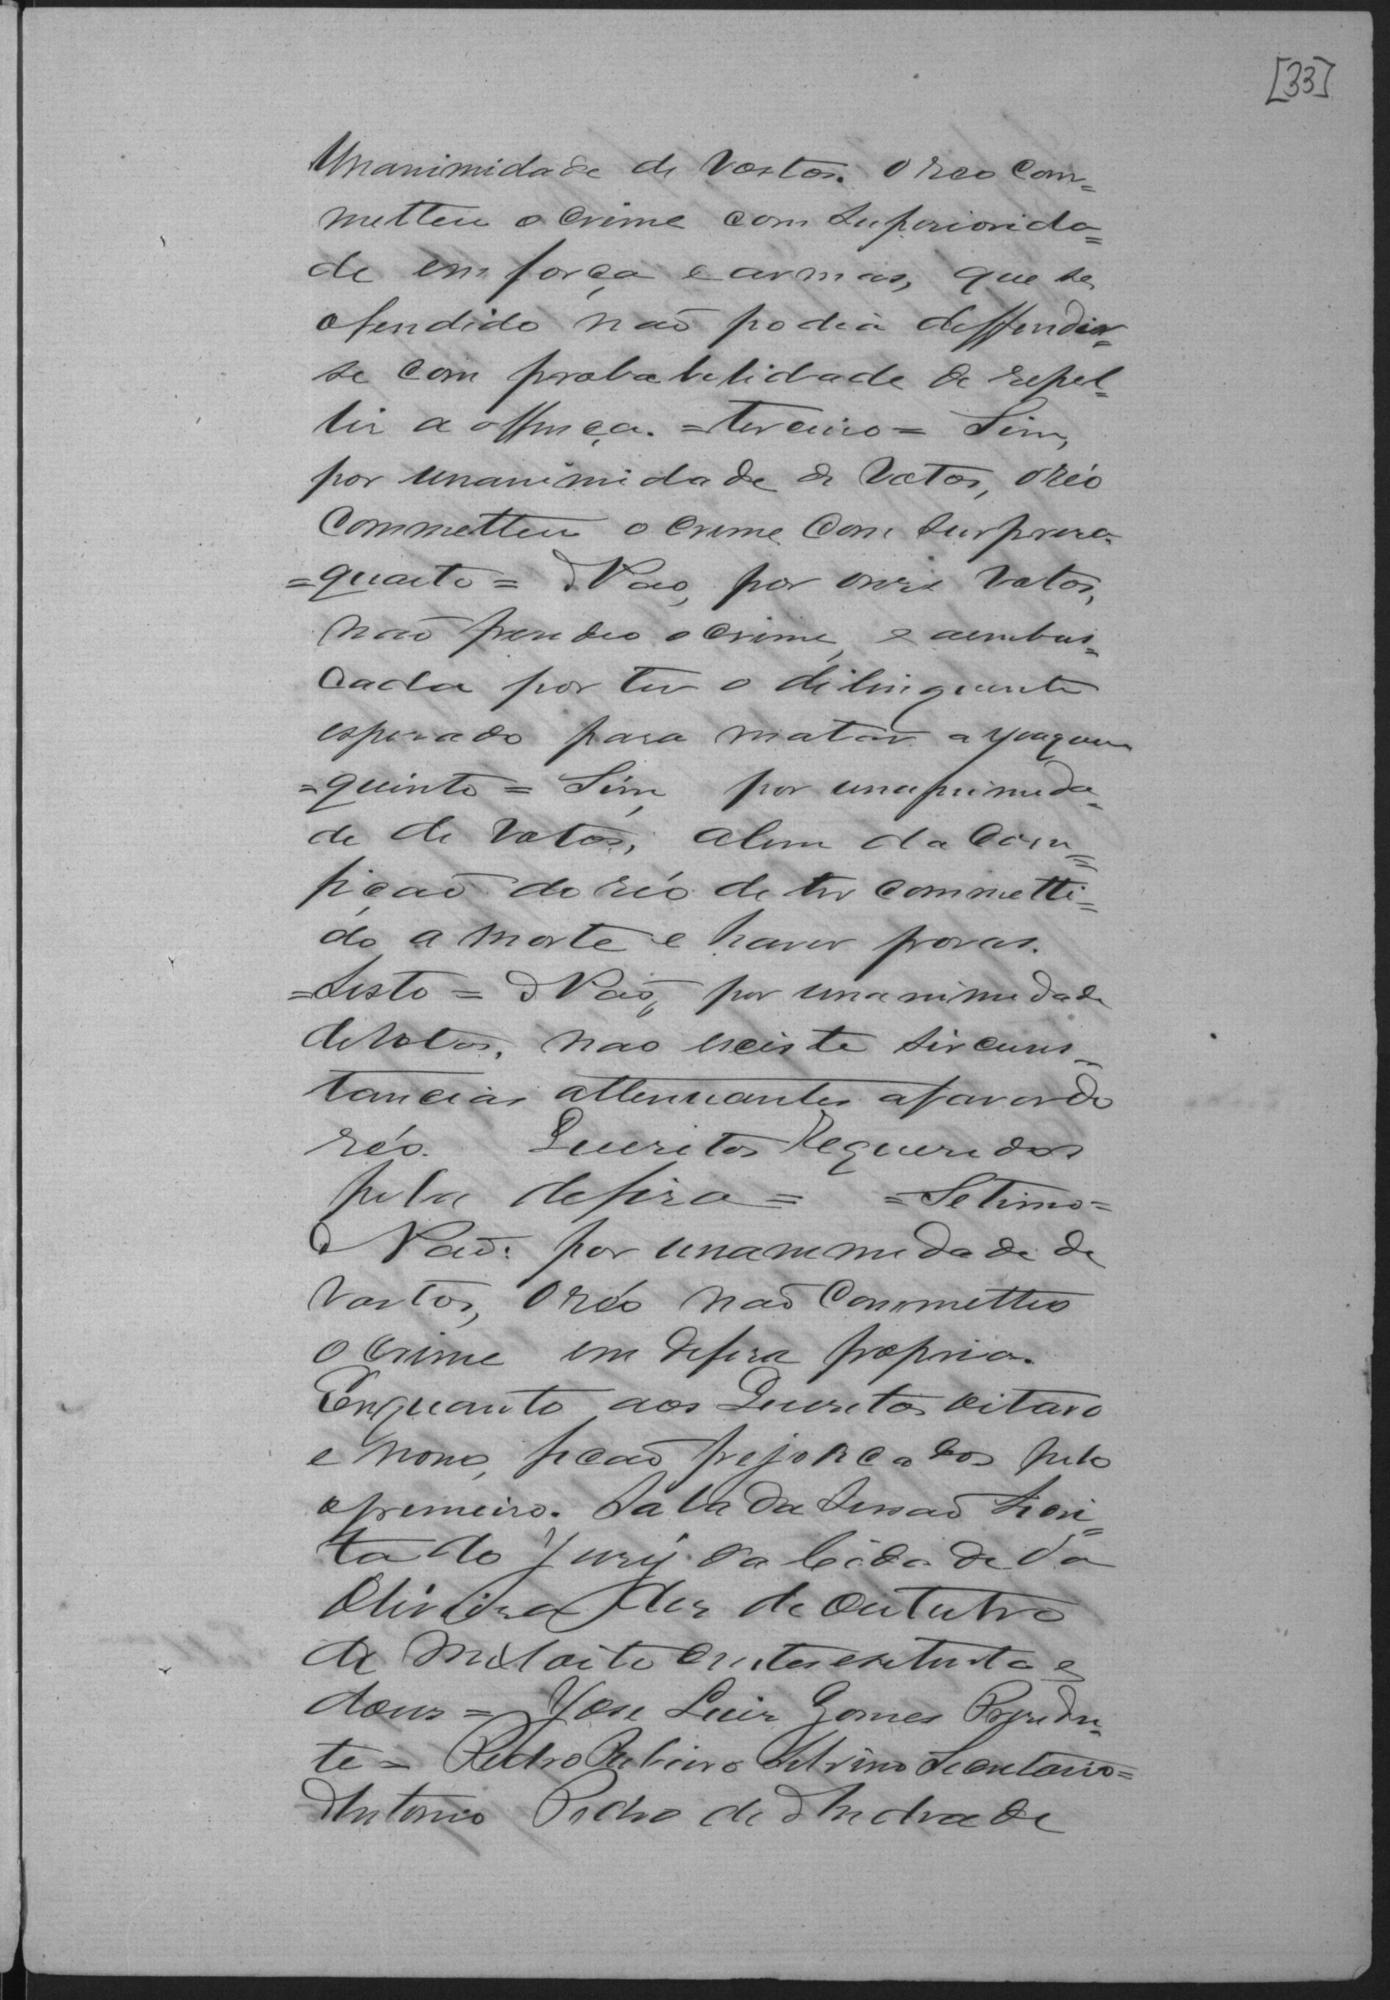 [33]
Unanimidade de Vostos. O reo com=
metteu o crime com superiorida=
de em força e armas, que se
ofendido não podia deffendir=
se com probabelidade de repel=
lir a offença. =terceiro= Sim,
por unanimidade de Votos, o réo
Commetteu o crime com surpreza
=quarto= Não, por onze Votos,
não precedeo o crime, e aembus=
cada por ter o dilinquente
esperado para matar a Joaquim
=quinto= Sim por unanimida=
de de Votos, alem da Con=
fição do réo de ter commetti=
do a morte e haver provas.
=Sesto= Não, por unanimidade
deVotos, nao exciste sircuns=
tancias attenuantes afavor do
réo. Quezitos Requeridos
pela defeza= =Setimo=
Não: por unanimidade de
Vostos, O réo não Commetteo
o Crime em defeza propria.
Enquanto aos Quezitos oitavo
e nono, ficão prejodicados pelo
oprimeiro. Sala da Sessão Secri=
ta do Jury da Cidade da
Oliveira dez de Outubro
de mil oito centos esetenta e
dous= Jose Luiz Gomes Prezeden=
te= Pedro Ribeiro Silvino Secretario=
Antonio Pedro de Andrade